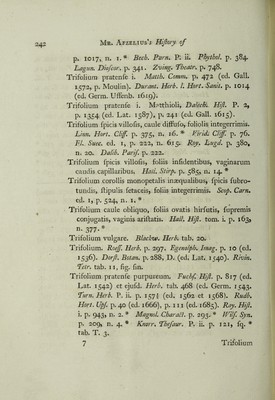 242 Mr. Afzelius's History of
p. 1017, n. 1. * Bech. Parn. P. ii. Phytbol. p. 384.
Lagun. Dioscor. p. 341. Zwing. Theatr. p. 748.
Trifolium pratense i. Match. Comm. p. 472 (ed. Gall.
1572, p. Moulin). Durant. Herb. l. Hort. Sanit. p. 1014
(ed. Germ. Uffenb. 1619).
Trifolium pratense i. Matthioli, Dalech. Hist. P. 2,
p. 1354 (ed. Lat. 1587), p. 241 (ed. Gall. 1615).
Trifolium spicis villosis, caule diffuso, foliolis integerrimis.
Linn. Hort. Cliff. p. 375, n. 16. * Virid. Cliff. p. 76.
Fl. Suec. ed. 1, p. 222, n. 615. Roy. Lugd. p. 380,
n. 20. Dalib. Paris. p. 222.
Trifolium spicis villosis, foliis insidentibus, vaginarum
caudis capillaribus. Hall. Stirp. p. 585, n. 14. *
Trifolium corollis monopetalis inæqualibus, spicis subro-
tundis, stipulis setaceis, foliis integerrimis. Scop. Carn.
ed. 1, p. 524, n. 1. *
Trifolium caule obliquo, foliis ovatis hirsutis, supremis
conjugatis, vaginis aristatis. Hall. Hist. tom. i. p. 163,
n. 377. *
Trifolium vulgare. Blackw. Herb. tab. 20.
Trifolium. Roess. Herb. p. 297. Egenolph. Imag. p. 10 (ed.
1536). Dorst. Botan. p. 288, D. (ed. Lat. 1540). Rivin.
Tetr. tab. 11, fig. sin.
Trifolium pratense purpureum. Fuchs. Hist. p. 817 (ed.
Lat. 1542) et ejusd. Herb. tab. 468 (ed. Germ. 1543.
Turn. Herb. P. ii. p. 157 (ed. 1562 et 1568). Rudb.
Hort. Ups. p. 40 (ed. 1666), p. 111 (ed. 1685). Ray. Hist.
i. p. 943, n. 2. * Magnol. Charact. p. 295. * Wilf. Syn.
p. 209, n. 4. * Knorr. Thesaur. P. ii. p. 121, sq. *
tab. T. 3.
7 Trifolium